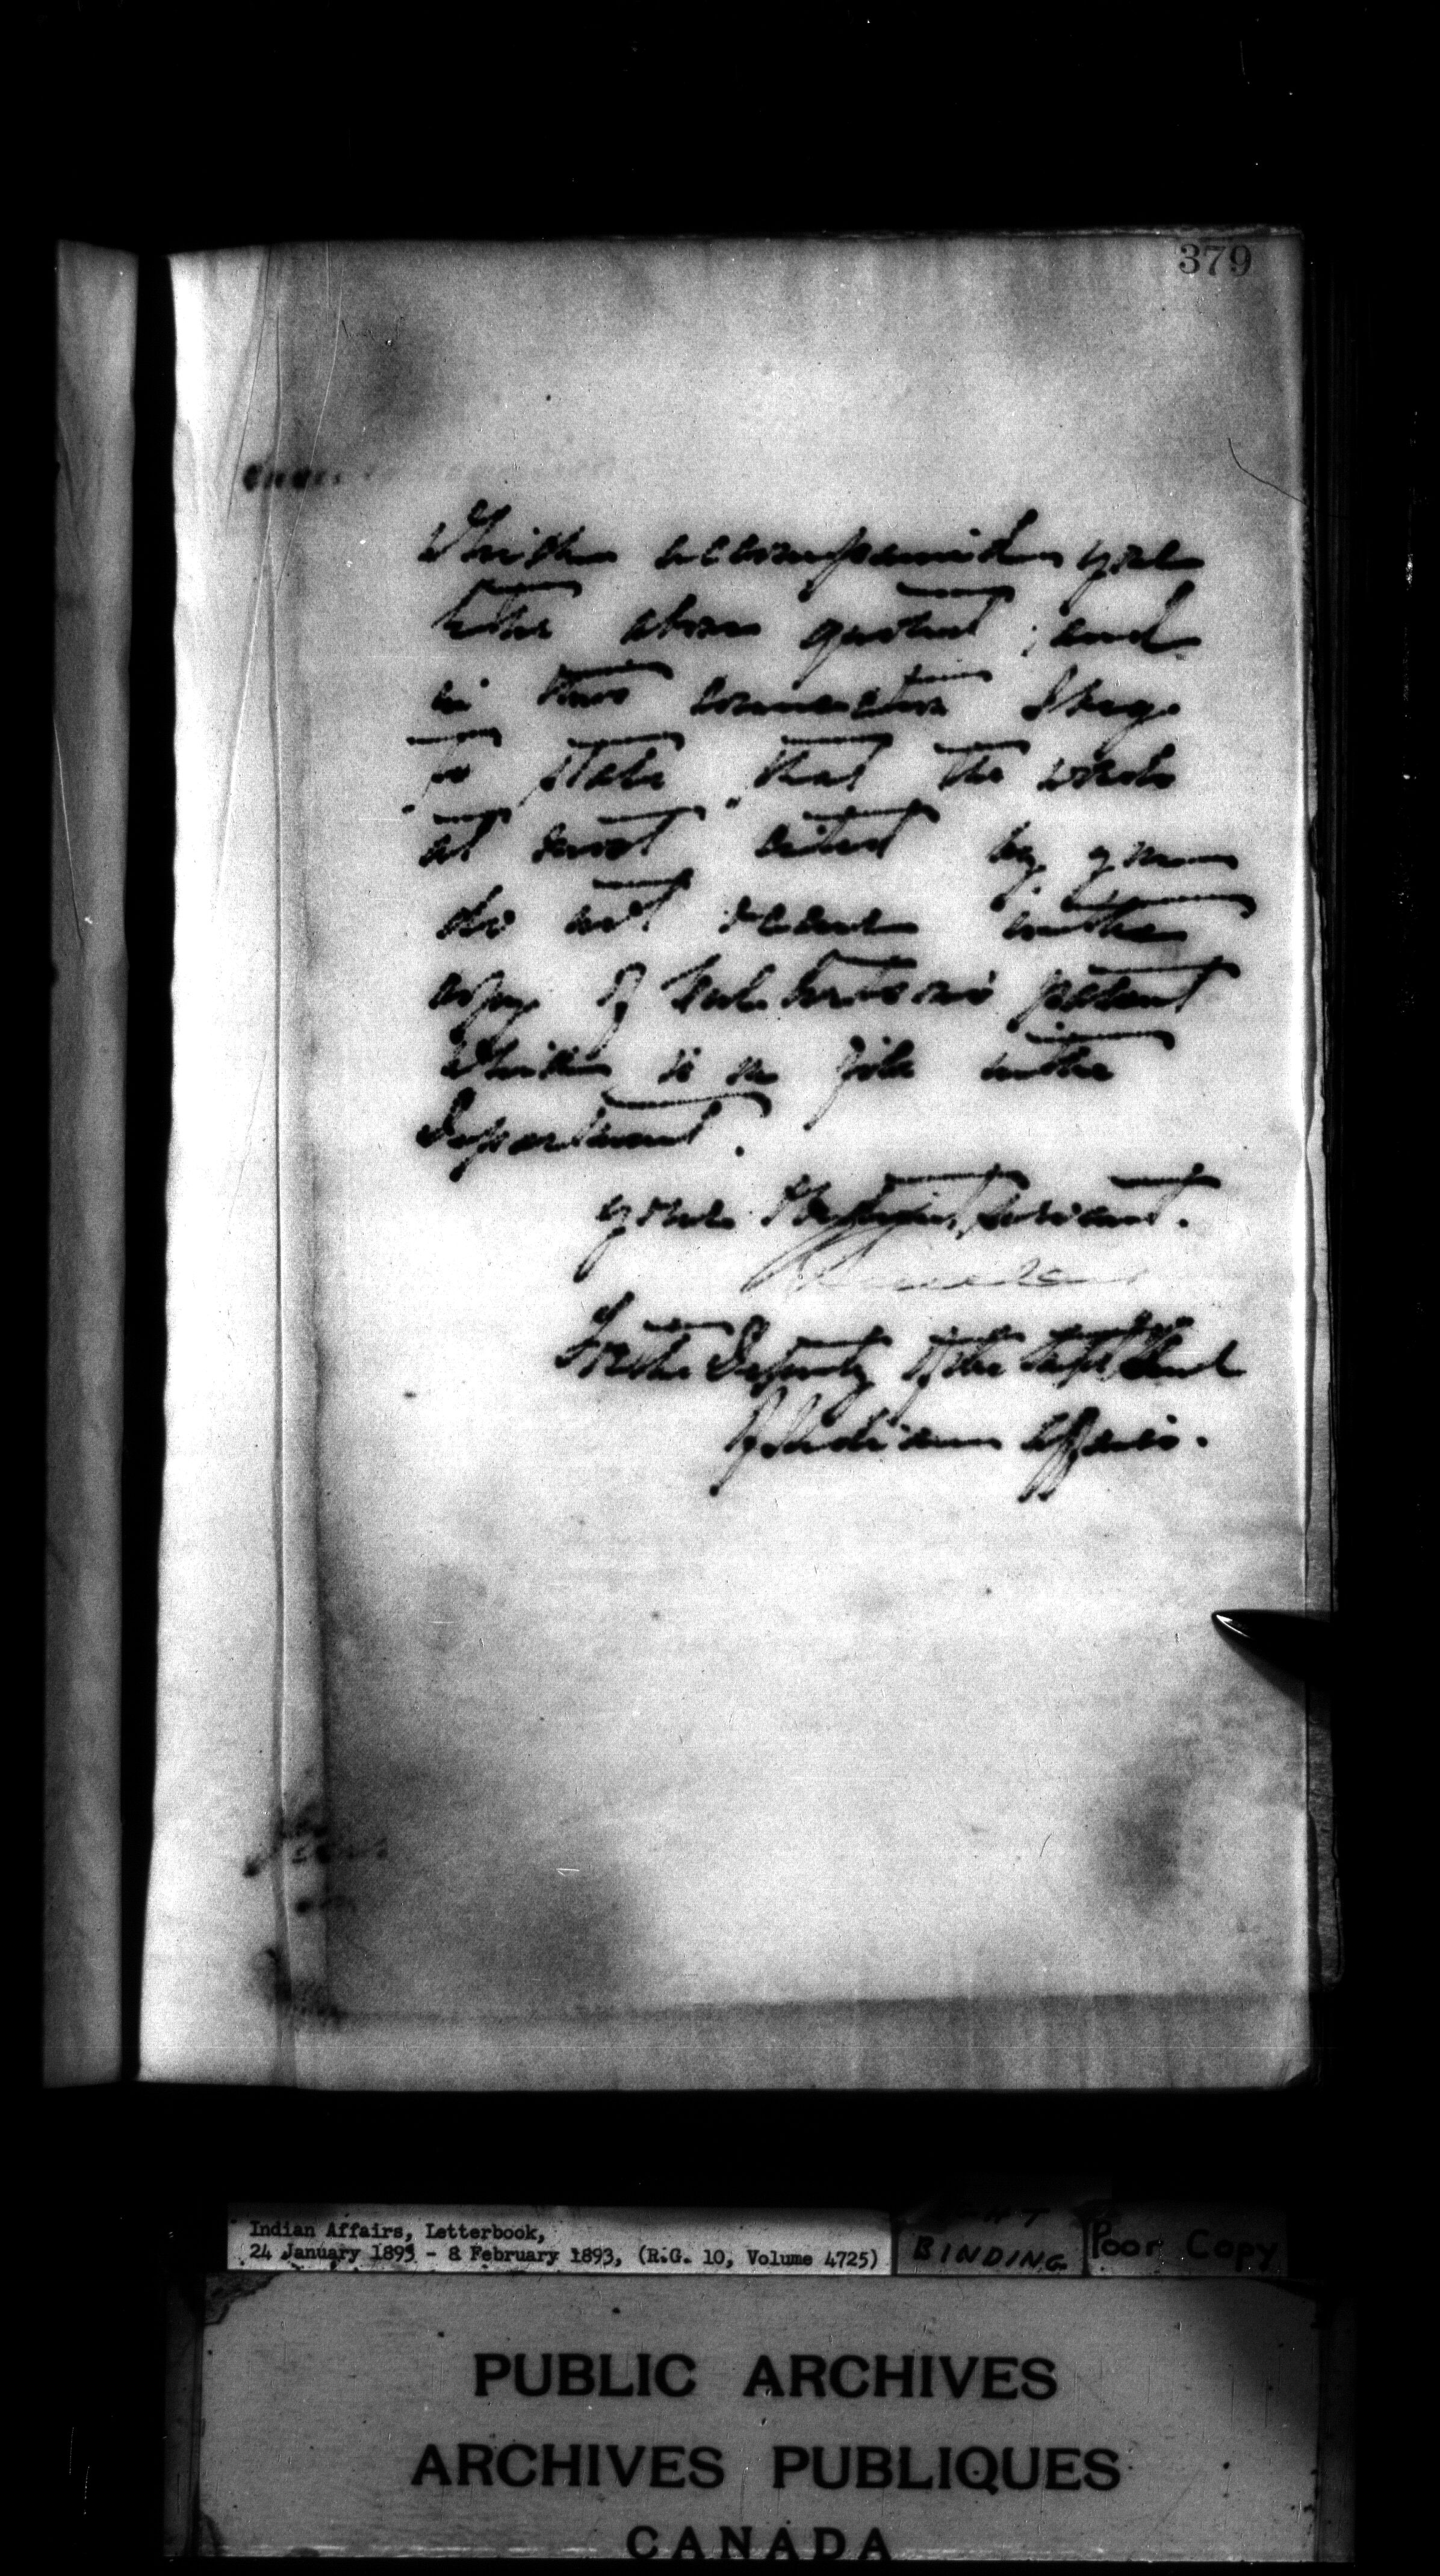 379
Which accompanied your
letter above quoted ; and
in this connection I beg
to state that the words
at cited by you
do not occur in the
copy of patent
which is on file in the
Department.
Your Obedient Servant.
For the Deputy of the Supt Genl
of Indian Affairs.
Indian Affairs, Letterbook,
24 January 1893 - 8 February 1893, (R.G. 10, Volume 4725)
BINDING
Poor Copy
PUBLIC ARCHIVES
ARCHIVES PUBLIQUES
CANADA